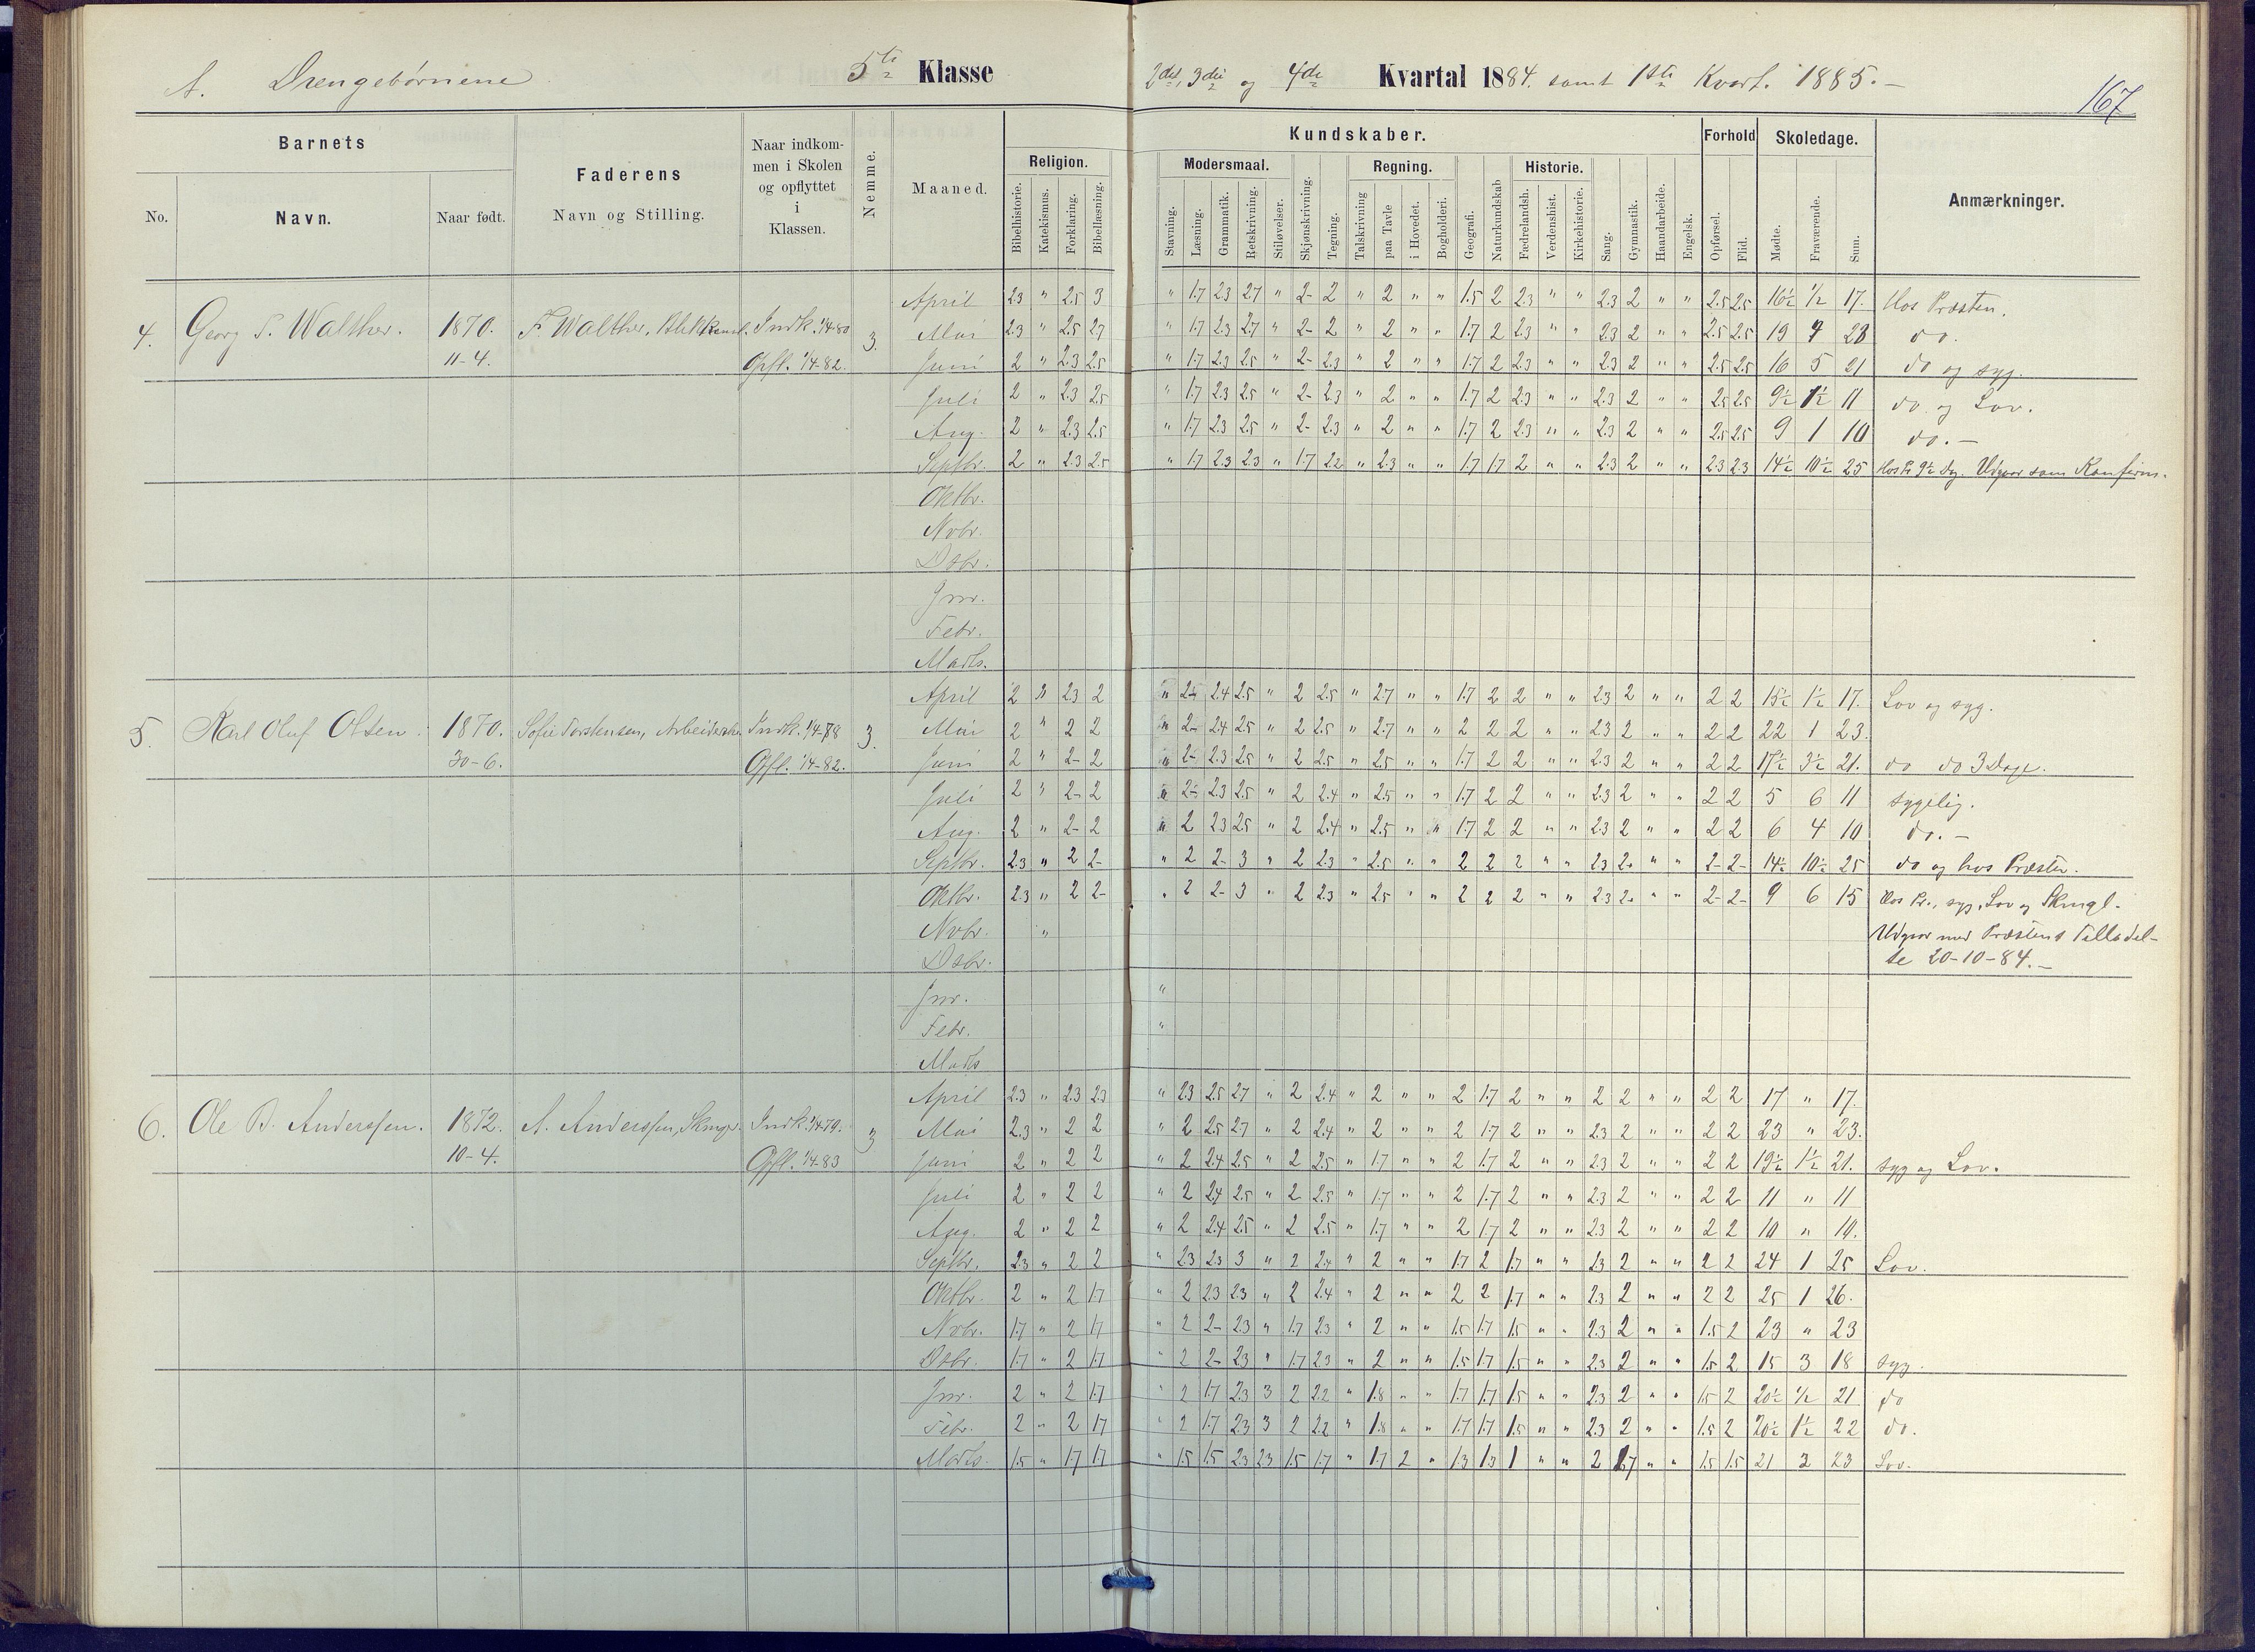 A. Drengebørnene 5te Klasse 2det, 3die og 4de Kvartal 1884. samt 1ste Kvart. 1885.-
167
Barnets
Faderens
Navn og Stilling.
Naar indkom-
men i Skolen
og opflyttet
i
Klassen.
Nemme.
Maaned.
Kundskaber.
Forhold
Skoledage.
Anmærkninger.
No.
Navn.
Naar født.
Religion.
Modersmaal.
Regning.
Historie.
Bibelhistorie.
Katekismus.
Forklaring.
Bibellæsning.
Stavning.
Læsning.
Grammatik.
Retskrivning.
Stiløvelser.
Skjønskrivning.
Tegning.
Talskrivning
paa Tavle
i Hovedet.
Bogholderi.
Geografi.
Naturkundskab
Fædrelandsh.
Verdenshist.
Kirkehistorie.
Sang.
Gymnastik.
Haandarbeide.
Engelsk.
Opførsel.
Flid.
Mødte.
Fraværende.
Sum.
April 2.3 " 2.5 3 " 1.7 2.3 2.7 " 2- 2 " 2 " " 1.5 2 2.3 " " 2.3 2 " " 2.5 2.5 16½ ½ 17. Hos Præsten.
4. Georg S. Walther. 1870. F. Walther, Indk. 1/4-80 3. Mai 2.3 " 2.5 2.7 " 1.7 2.3 2.7 " 2- 2 " 2 " " 1.7 2 2.3 " " 2.3 2 " " 2.5 2.5 19 4 23 do.
11-4. Opfl. 1/4-82. Juni 2 " 2.3 2.5 " 1.7 2.3 2.5 " 2- 2.3 " 2 " " 1.7 2 2.3 " " 2.3 2 " " 2.5 2.5 16 5 21 do og syg.
Juli 2 " 2.3 2.5 " 1.7 2.3 2.5 " 2- 2.3 " 2 " " 1.7 2 2.3 " " 2.3 2 " " 2.5 2.5 9½ 1½ 11 do og Lov.
Aug. 2 " 2.3 2.5 " 1.7 2.3 2.5 " 2- 2.3 " 2 " " 1.7 2 2.3 " " 2.3 2 " " 2.5 2.5 9 1 10 do.-
Septbr. 2 " 2.3 2.5 " 1.7 2.3 2.3 " 1.7 2.2 " 2.3 " " 1.7 1.7 2 " " 2.3 2 " " 2.3 2.3 14½ 10½ 25 Hos Pr 9½ Dg. Udgaar som Konfirm.
Oktbr.
Nvbr.
Dsbr.
Jnr.
Febr.
Marts.
April 2 " 2.3 2 " 2- 2.4 2.5 " 2 2.5 " 2.7 " " 1.7 2 2 " " 2.3 2 " " 2 2 15½ 1½ 17. Lov og syg.
5. Karl Oluf Olsen. 1870. Sofie Torstensen, Indk. 1/4-78 3. Mai 2 " 2 2 " 2- 2.4 2.5 " 2 2.5 " 2.7 " " 2 2 2 " " 2.3 2 " " 2 2 22 1 23.
30-6. Opfl. 1/4-82. Juni 2 " 2- 2 " 2- 2.3 2.5 " 2 2.5 " 2.5 " " 1.7 2 2 " " 2.3 2 " " 2 2 17½ 3½ 21. do do 3 Dage.
Juli 2 " 2- 2 " 2- 2.3 2.5 " 2 2.4 " 2.5 " " 1.7 2 2 " " 2.3 2 " " 2 2 5 6 11 sygelig.
Aug. 2 " 2- 2 " 2 2.3 2.5 " 2 2.4 " 2.5 " " 1.7 2 2 " " 2.3 2 " " 2 2 6 4 10 do.-
Septbr. 2.3 " 2 2- " 2 2- 3 " 2 2.3 " 2.5 " " 2 2 2 " " 2.3 2. " " 2- 2- 14½ 10½ 25 do og hos Præsten.
Oktbr. 2.3 " 2 2- " 2 2- 3 " 2 2.3 " 2.5 " " 2 2 2 " " 2.3 2. " " 2- 2- 9 6 15 Hos Pr., syg, Lov og Skmgl.
Nvbr. " Udgaar med Præstens Tilladel-
Dsbr. se 20-10-84.-
Jnr. "
Febr. "
Marts
April 2.3 " 2.3 2.3 " 2.3 2.5 2.7 " 2 2.4 " 2 " " 2 1.7 2 " " 2 2 " " 2 2 17 " 17.
6. Ole B. Anderssen. 1872. A. Anderssen, Indk. 1/4-79. 3 Mai 2.3 " 2 2 " 2 2.5 2.7 " 2 2.4 " 2 " " 2 1.7 2 " " 2.3 2 " " 2 2 23 " 23.
10-4. Opfl. 1/4-83 Juni 2 " 2 2 " 2 2.4 2.5 " 2 2.5 " 1.7 " " 2 1.7 2 " " 2.3 2 " " 2 2 19½ 1½ 21. syg og Lov.
Juli 2 " 2 2 " 2 2.4 2.5 " 2 2.5 " 1.7 " " 2 1.7 2 " " 2.3 2 " " 2 2 11 " 11
Aug. 2 " 2 2 " 2 2.4 2.5 " 2 2.5 " 1.7 " " 2 1.7 2 " " 2.3 2 " " 2 2 10 " 10.
Septbr. 2.3 " 2 2 " 2.3 2.3 3 " 2 2.4 " 2 " " 1.7 2 1.7 " " 2.3 2 " " 2 2 24 1 25 Lov.
Oktbr. 2 " 2 1.7 " 2 2.3 2.3 " 2 2.4 " 2 " " 2 2 1.7 " " 2.3 2 " " 2 2 25 1 26.
Nvbr. 1.7 " 2 1.7 " 2 2- 2.3 " 1.7 2.3 " 2 " " 1.5 1.7 1.5 " " 2.3 2 " " 1.5 2 23 " 23
Dsbr. 1.7 " 2 1.7 " 2 2- 2.3 " 1.7 2.3 " 2 " " 1.5 1.7 1.5 " " 2.3 2 " " 1.5 2 15 3 18 syg.
Jnr. 2 " 2 1.7 " 2 1.7 2.3 3 2 2.2 " 1.8 " " 1.7 1.7 1.5 " " 2.3 2 " " 1.5 2 20½ ½ 21 do
Febr. 2 " 2 1.7 " 2 1.7 2.3 3 2 2.2 " 1.8 " " 1.7 1.7 1.5 " " 2.3 2 " " 1.5 2 20½ 1½ 22 do.
Marts. 1.5 " 1.7 1.7 " 1.5 1.5 2.3 2.3 1.5 1.7 " 1.7 2 " 1.3 1.3 1 " " 2 1.7 " " 1.5 1.5 21 2 23 Lov.